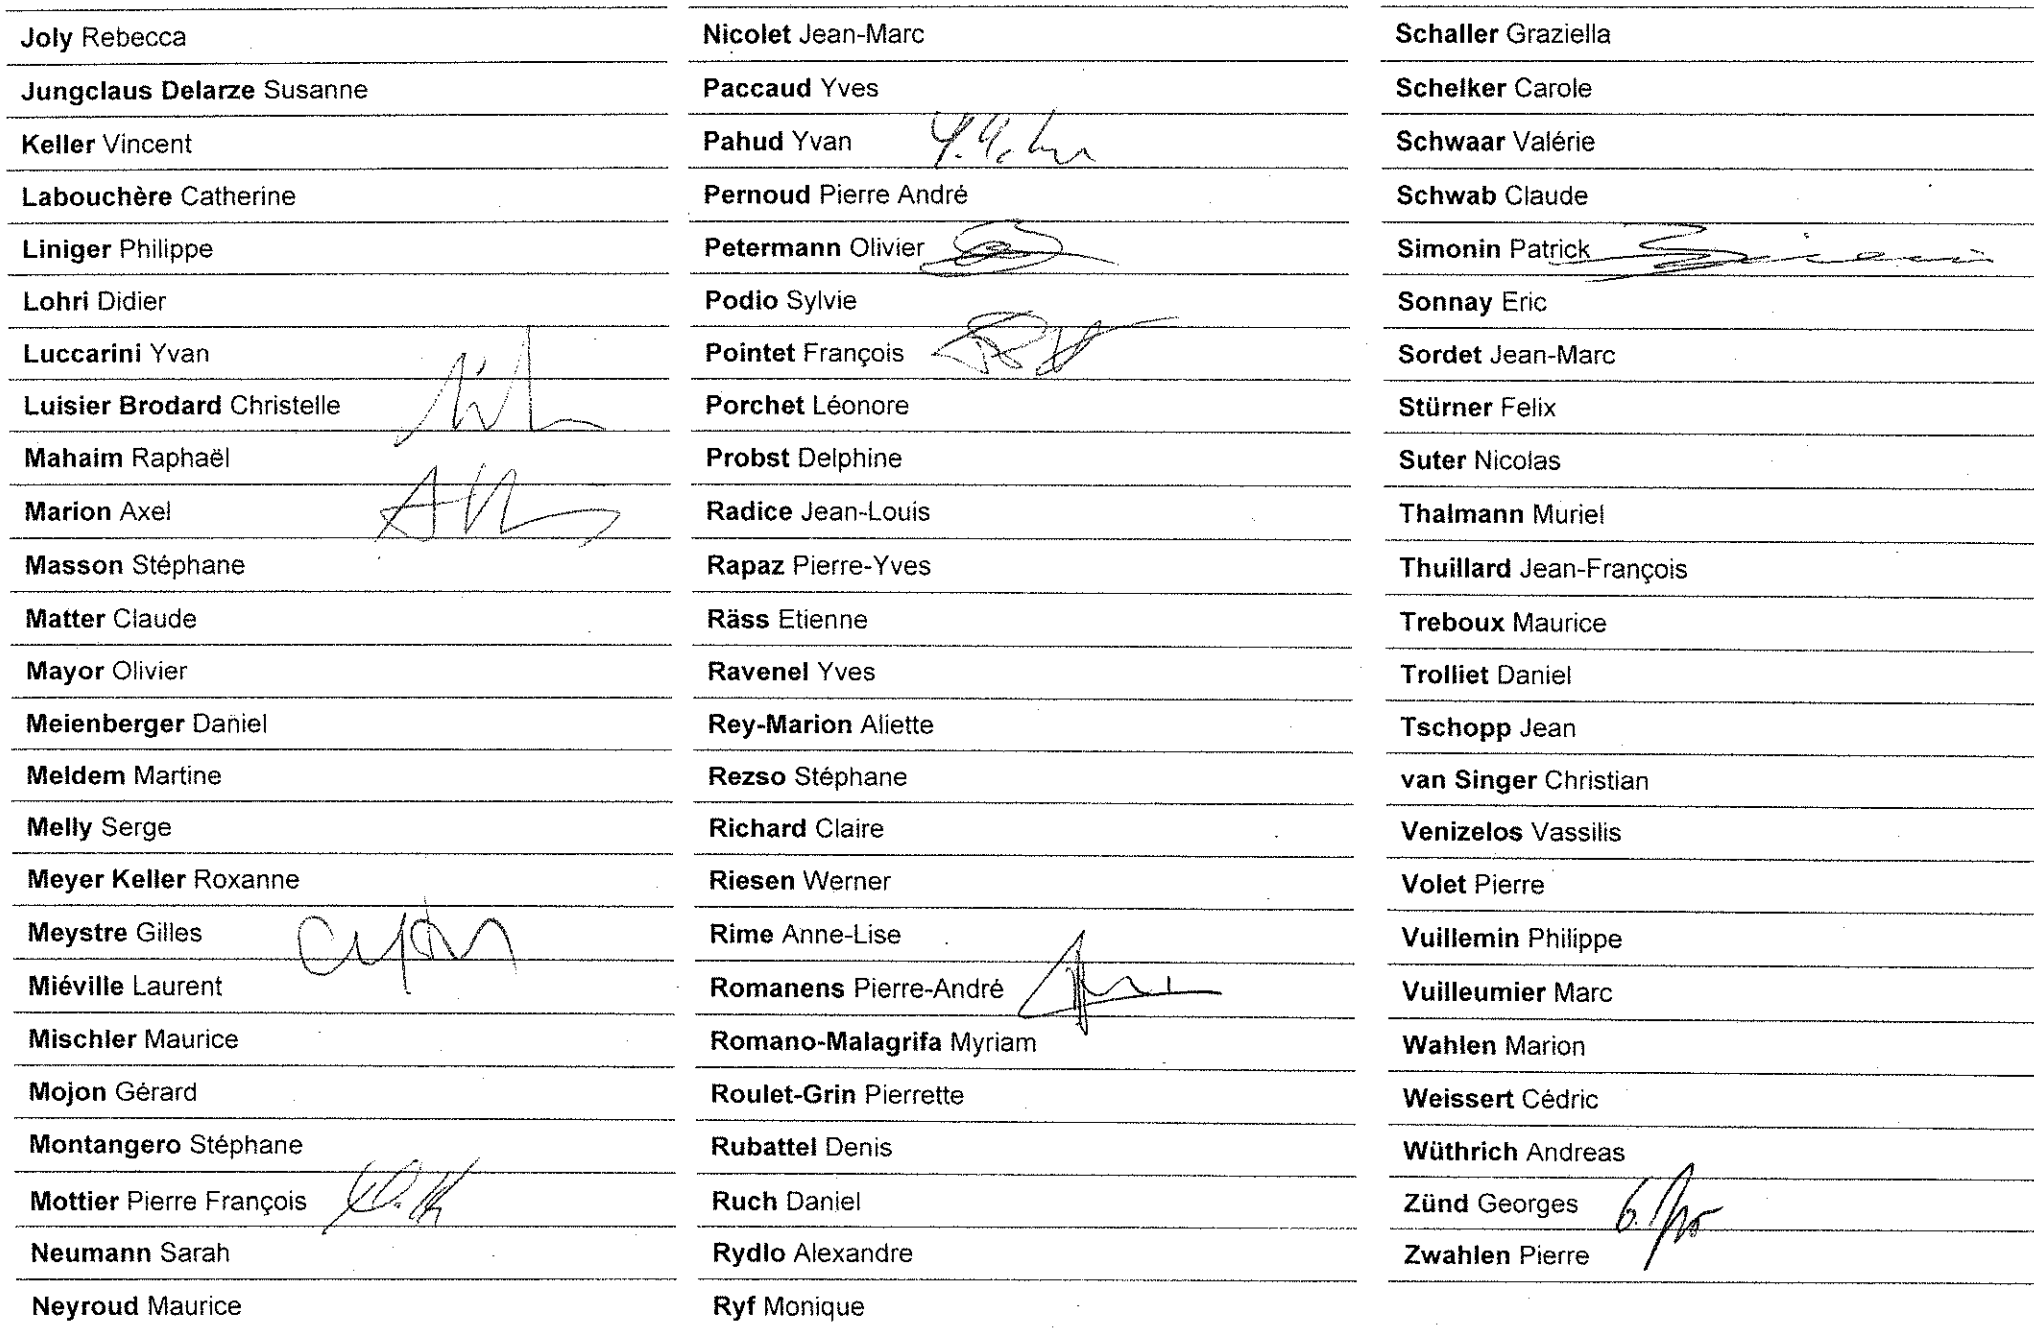 Joly Rebecca
Jungclaus Delarze Susanne
Keller Vincent
Labouchère Catherine
Liniger Philippe
Lohri Didier
Luccarini Yvan
Luisier Brodard Christelle
Mahaim Raphaël
Marion Axel
Masson Stéphane
Matter Claude
Mayor Olivier
Meienberger Daniel
Meldem Martine
Melly Serge
Meyer Keller Roxanne
Meystre Gilles
Miéville Laurent
Mischler Maurice
Mojon Gérard
Montangero Stéphane
Mottier Pierre François
Neumann Sarah
Neyroud Maurice
Nicolet Jean-Marc
Paccaud Yves
Pahud Yvan
Pernoud Pierre André
Petermann Olivier
Podio Sylvie
Pointet François
Porchet Léonore
Probst Delphine
Radice Jean-Louis
Rapaz Pierre-Yves
Räss Etienne
Ravenel Yves
Rey-Marion Aliette
Rezso Stéphane
Richard Claire
Riesen Werner
Rime Anne-Lise
Romanens Pierre-André
Romano-Malagrifa Myriam
Roulet-Grin Pierrette
Rubattel Denis
Ruch Daniel
Rydlo Alexandre
Ryf Monique
Schaller Graziella
Schelker Carole
Schwaar Valérie
Schwab Claude
Simonin Patrick
Sonnay Eric
Sordet Jean-Marc
Stürner Felix
Suter Nicolas
Thalmann Muriel
Thuillard Jean-François
Treboux Maurice
Trolliet Daniel
Tschopp Jean
van Singer Christian
Venizelos Vassilis
Volet Pierre
Vuillemin Philippe
Vuilleumier Marc
Wahlen Marion
Weissert Cédric
Wüthrich Andreas
Zünd Georges
Zwahlen Pierre